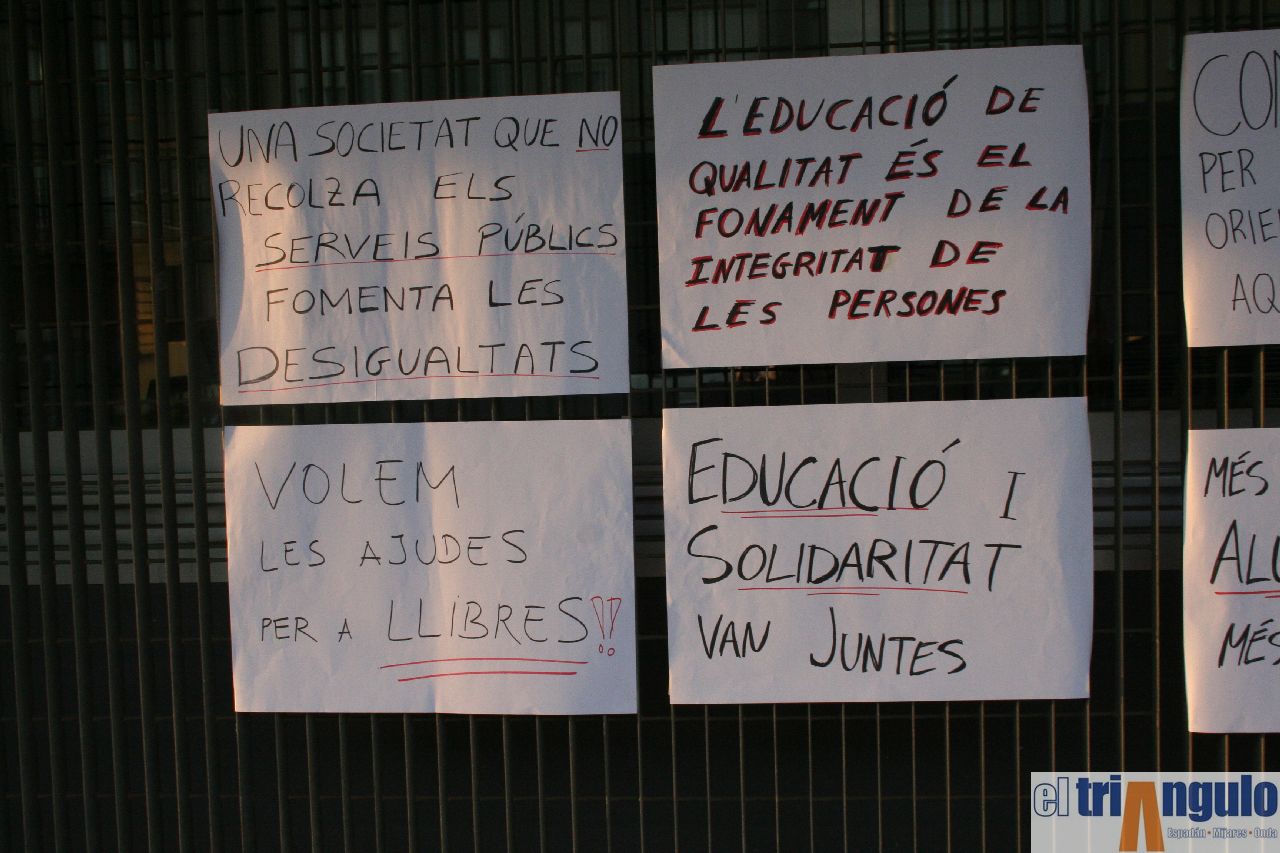 UNA SOCIETAT QUE NO
RECOLZA ELS
SERVEIS PÚBLICS
FOMENTA LES
DESIGUALTATS
L'EDUCACIÓ DE
QUALITAT ÉS EL
FONAMENT DE LA
INTEGRITAT DE
LES PERSONES
PER
VOLEM
LES AJUDES
PER A LLIBRES!!
EDUCACIÓ I
SOLIDARITAT
VAN JUNTES
MÉS
MÉS
el triangulo
Espadán • Mijares • Onda